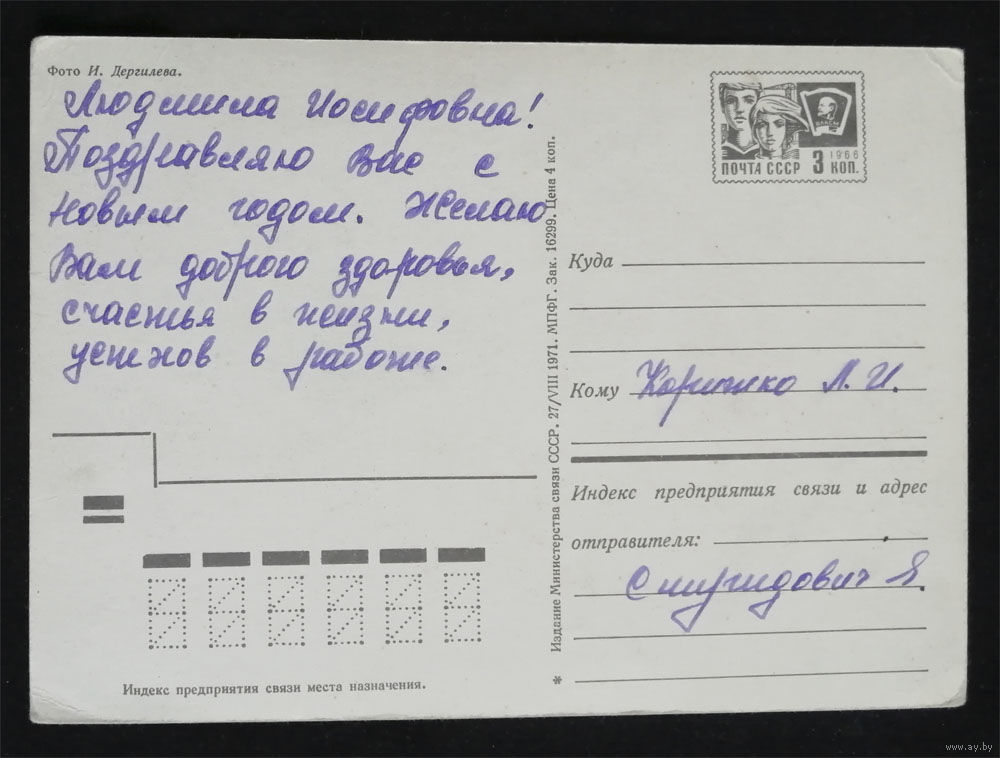 Фото И. Дергилева.
Людмила Иосифовна!
Поздравляю Вас с
Новым годом. Желаю
Вам доброго здоровья,
счастья в жизни,
успехов в работе.
Индекс предприятия связи места назначения.
Издание Министерства связи СССР. 27/VIII 1971. МПФГ. Зак. 16299. Цена 4 коп.
ВЛКСМ
1966
ПОЧТА СССР 3 КОП.
Куда
Кому Коритко Л. И.
Индекс предприятия связи и адрес
отправителя:
Спиридович Я.
*
www.ay.by